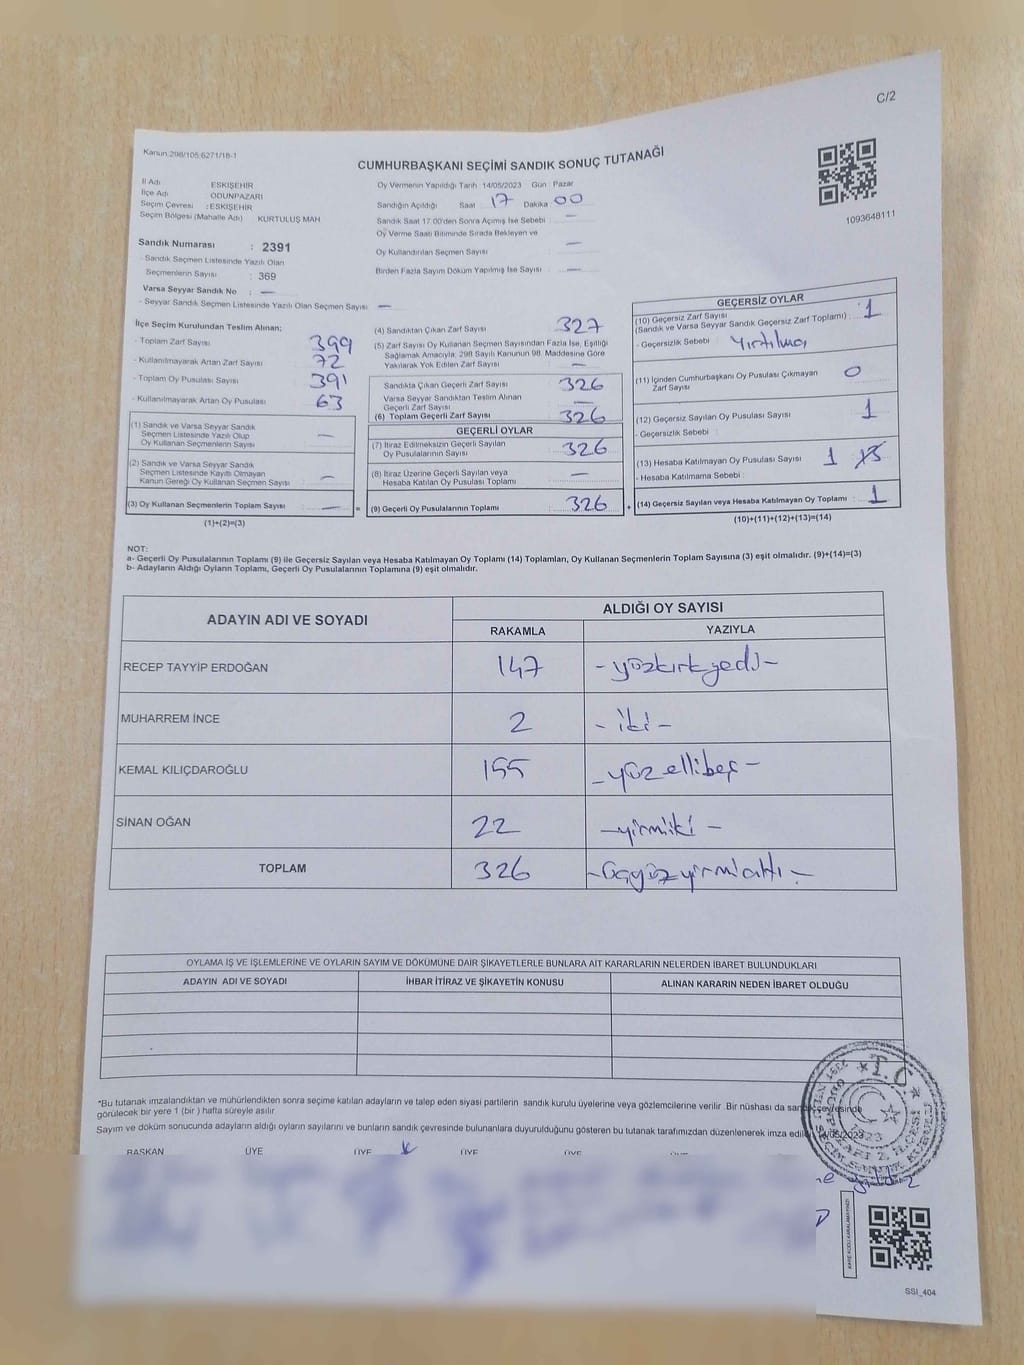 C/2
Kanun:298/105,6271/18-1
CUMHURBAŞKANI SEÇİMİ SANDIK SONUÇ TUTANAĞI
1093648111
İl Adı ESKİŞEHİR
İlçe Adı ODUNPAZARI
Seçim Çevresi : ESKİŞEHİR
Seçim Bölgesi (Mahalle Adı) KURTULUŞ MAH
Sandık Numarası : 2391
- Sandık Seçmen Listesinde Yazılı Olan
Seçmenlerin Sayısı : 369
Varsa Seyyar Sandık No : —
- Seyyar Sandık Seçmen Listesinde Yazılı Olan Seçmen Sayısı —
Oy Vermenin Yapıldığı Tarih : 14/05/2023 Gün : Pazar
Sandığın Açıldığı Saat 17 Dakika 00
Sandık Saat 17:00'den Sonra Açılmış İse Sebebi : —
Oy Verme Saati Bitiminde Sırada Bekleyen ve
Oy Kullandırılan Seçmen Sayısı : —
Birden Fazla Sayım Döküm Yapılmış İse Sayısı : —
İlçe Seçim Kurulundan Teslim Alınan;
- Toplam Zarf Sayısı : 399
- Kullanılmayarak Artan Zarf Sayısı : 72
- Toplam Oy Pusulası Sayısı : 391
- Kullanılmayarak Artan Oy Pusulası : 63
(1) Sandık ve Varsa Seyyar Sandık
Seçmen Listesinde Yazılı Olup
Oy Kullanan Seçmenlerin Sayısı : —
(2) Sandık ve Varsa Seyyar Sandık
Seçmen Listesinde Kayıtlı Olmayan
Kanun Gereği Oy Kullanan Seçmen Sayısı : —
(3) Oy Kullanan Seçmenlerin Toplam Sayısı : —
(1)+(2)=(3)
=
(4) Sandıktan Çıkan Zarf Sayısı : 327
(5) Zarf Sayısı Oy Kullanan Seçmen Sayısından Fazla İse, Eşitliği
Sağlamak Amacıyla; 298 Sayılı Kanunun 98. Maddesine Göre
Yakılarak Yok Edilen Zarf Sayısı : —
Sandıkta Çıkan Geçerli Zarf Sayısı : 326
Varsa Seyyar Sandıktan Teslim Alınan
Geçerli Zarf Sayısı : —
(6) Toplam Geçerli Zarf Sayısı : 326
GEÇERLİ OYLAR
(7) İtiraz Edilmeksizin Geçerli Sayılan
Oy Pusulalarının Sayısı : 326
(8) İtiraz Üzerine Geçerli Sayılan veya
Hesaba Katılan Oy Pusulası Toplamı : —
(9) Geçerli Oy Pusulalarının Toplamı : 326
+
GEÇERSİZ OYLAR
(10) Geçersiz Zarf Sayısı
(Sandık ve Varsa Seyyar Sandık Geçersiz Zarf Toplamı) : 1
- Geçersizlik Sebebi : Yırtılma
(11) İçinden Cumhurbaşkanı Oy Pusulası Çıkmayan
Zarf Sayısı : 0
(12) Geçersiz Sayılan Oy Pusulası Sayısı : 1
- Geçersizlik Sebebi :
(13) Hesaba Katılmayan Oy Pusulası Sayısı : 1
- Hesaba Katılmama Sebebi :
(14) Geçersiz Sayılan veya Hesaba Katılmayan Oy Toplamı : 1
(10)+(11)+(12)+(13)=(14)
NOT:
a- Geçerli Oy Pusulalarının Toplamı (9) ile Geçersiz Sayılan veya Hesaba Katılmayan Oy Toplamı (14) Toplamları, Oy Kullanan Seçmenlerin Toplam Sayısına (3) eşit olmalıdır. (9)+(14)=(3)
b- Adayların Aldığı Oyların Toplamı, Geçerli Oy Pusulalarının Toplamına (9) eşit olmalıdır.
ADAYIN ADI VE SOYADI ALDIĞI OY SAYISI
RAKAMLA YAZIYLA
RECEP TAYYİP ERDOĞAN 147 - yüzkırkyedi -
MUHARREM İNCE 2 - iki -
KEMAL KILIÇDAROĞLU 155 - yüzellibeş -
SİNAN OĞAN 22 - yirmiiki -
TOPLAM 326 - üçyüzyirmialtı -
OYLAMA İŞ VE İŞLEMLERİNE VE OYLARIN SAYIM VE DÖKÜMÜNE DAİR ŞİKAYETLERLE BUNLARA AİT KARARLARIN NELERDEN İBARET BULUNDUKLARI
ADAYIN ADI VE SOYADI İHBAR İTİRAZ VE ŞİKAYETİN KONUSU ALINAN KARARIN NEDEN İBARET OLDUĞU
*Bu tutanak imzalandıktan ve mühürlendikten sonra seçime katılan adayların ve talep eden siyasi partilerin sandık kurulu üyelerine veya gözlemcilerine verilir. Bir nüshası da sandık çevresinde
görülecek bir yere 1 (bir) hafta süreyle asılır.
Sayım ve döküm sonucunda adayların aldığı oyların sayılarını ve bunların sandık çevresinde bulunanlara duyurulduğunu gösteren bu tutanak tarafımızdan düzenlenerek imza edildi.
BAŞKAN ÜYE ÜYE ÜYE ÜYE
T.C.
KARE KODU KARALAMAYINIZ!
SSI_404